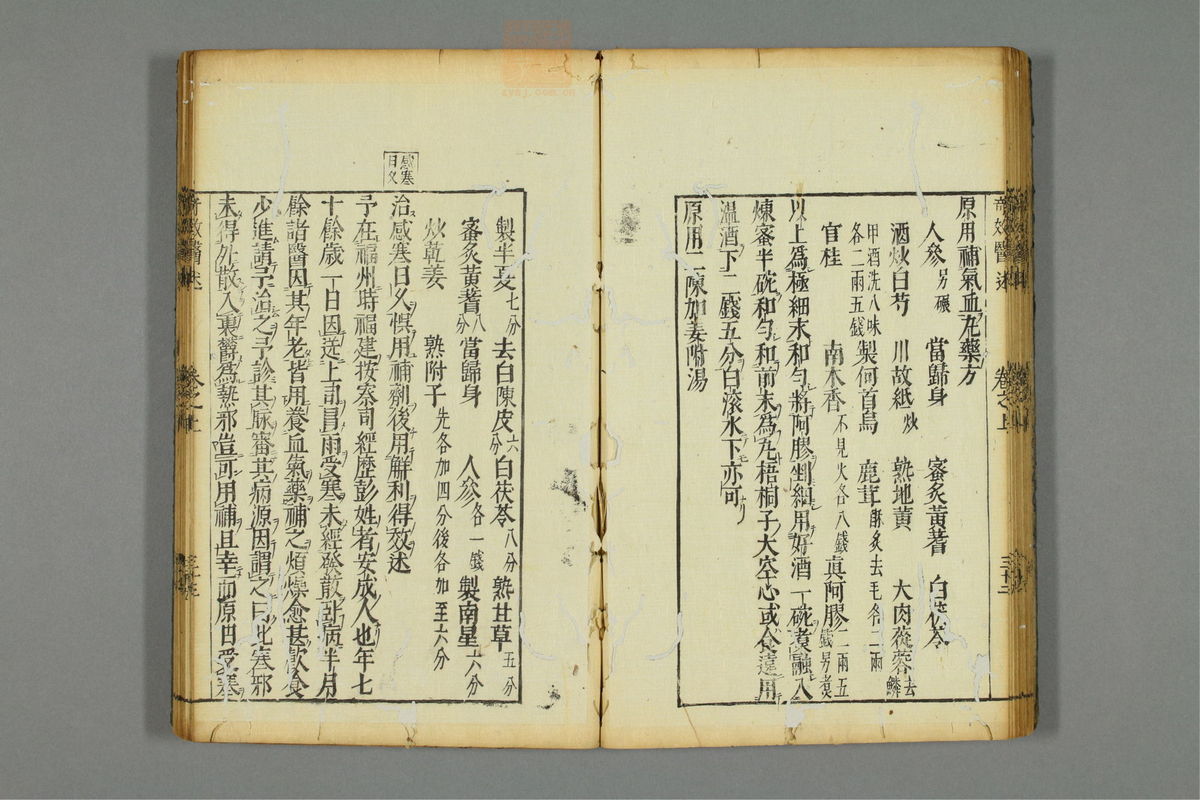 原用補氣血丸藥方
人參另碾 當歸身 蜜炙黃耆 白茯苓
酒炒白芍 川故紙炒 熟地黃 大肉蓯蓉去鱗
甲酒洗八味各二兩五錢 製何首烏 鹿茸酥炙去毛各二兩
官桂 南木香不見火各八錢 真阿膠二兩五錢另煮
以上為極細末和勻將阿膠剉細用好酒一碗煑融入
煉蜜半碗和勻和前末為丸梧桐子大空心或食遠用
溫酒下二錢五分白滾水下亦可
原用二陳加姜附湯
製半夏七分 去白陳皮六分 白茯苓八分 熟甘草五分
蜜炙黃耆八分 當歸身 人參各一錢 製南星六分
炒乾姜 熟附子先各加四分後各加至六分
感寒日久
治感寒日久惧用補劑後用解利得效述
予在福州時福建按察司經歷彭姓者安成人也年七
十餘歲一日因送上司冒雨受寒未經發散卧病半月
餘諸醫因其年老皆用養血氣藥補之煩燥愈甚飲食
少進請予治之予診其脉審其病源因謂之曰此寒邪
未得外散入裏鬱為熱邪豈可用補且幸而原日受寒
奇效醫述
卷之上